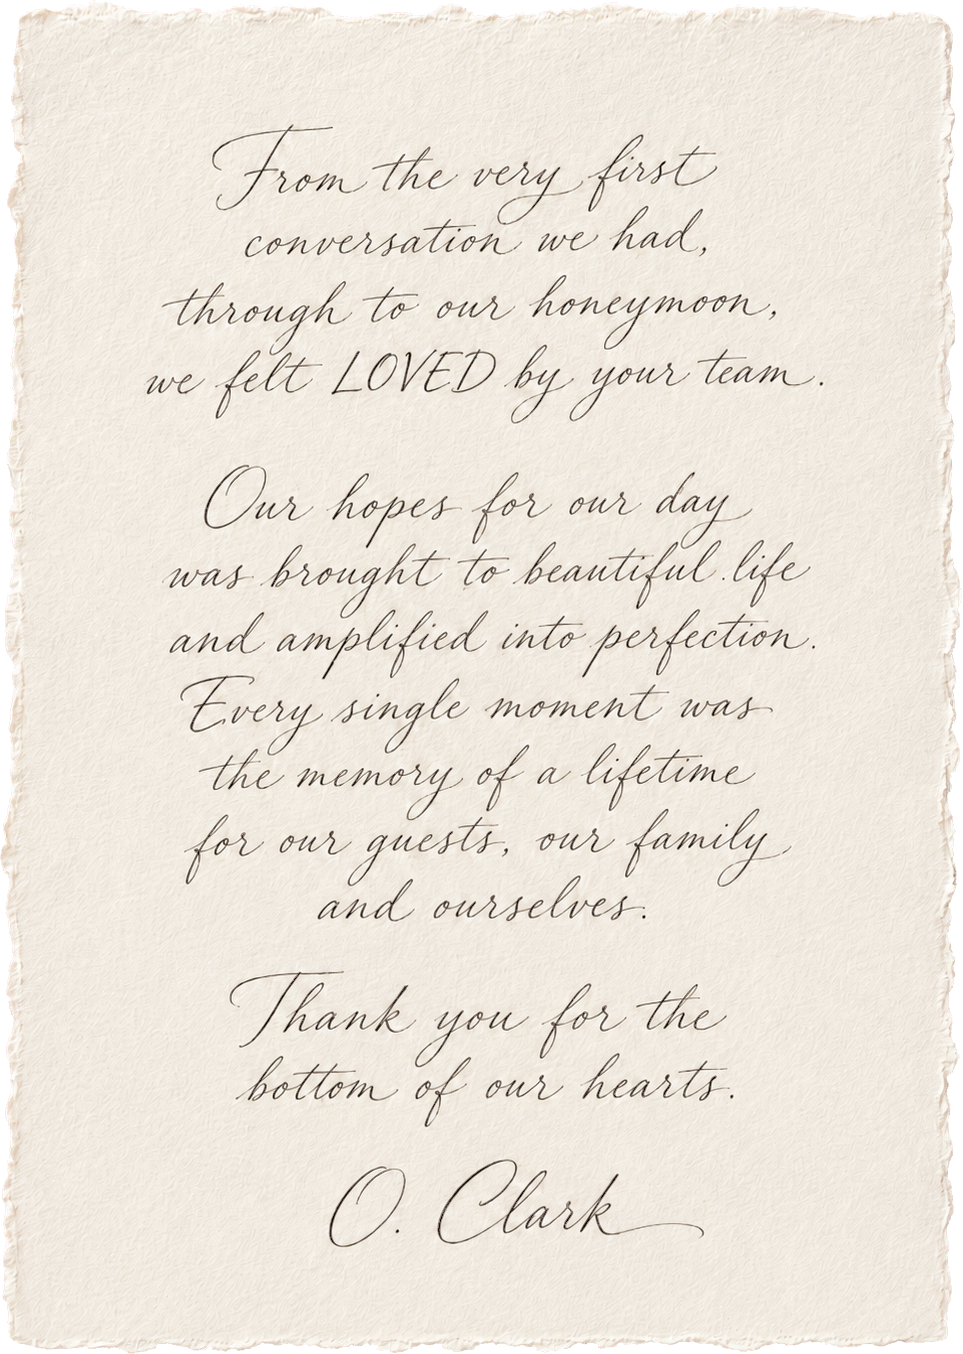 From the very first
conversation we had,
through to our honeymoon,
we felt LOVED by your team.
Our hopes for our day
was brought to beautiful life
and amplified into perfection.
Every single moment was
the memory of a lifetime
for our guests, our family
and ourselves.
Thank you for the
bottom of our hearts.
O. Clark